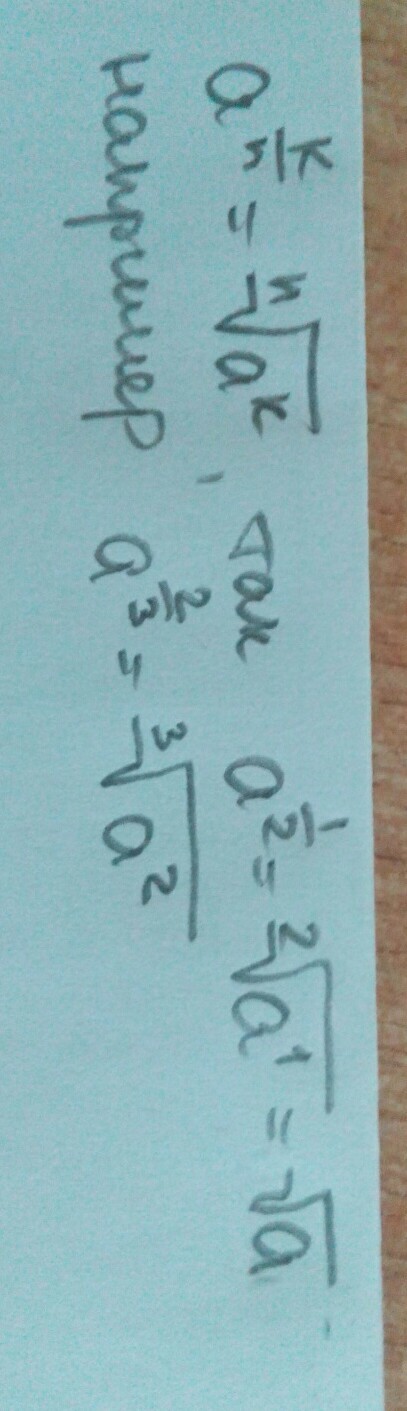 a^{\frac{k}{n}} = \sqrt[n]{a^k}, так a^{\frac{1}{2}} = \sqrt[2]{a^1} = \sqrt{a}
например a^{\frac{2}{3}} = \sqrt[3]{a^2}